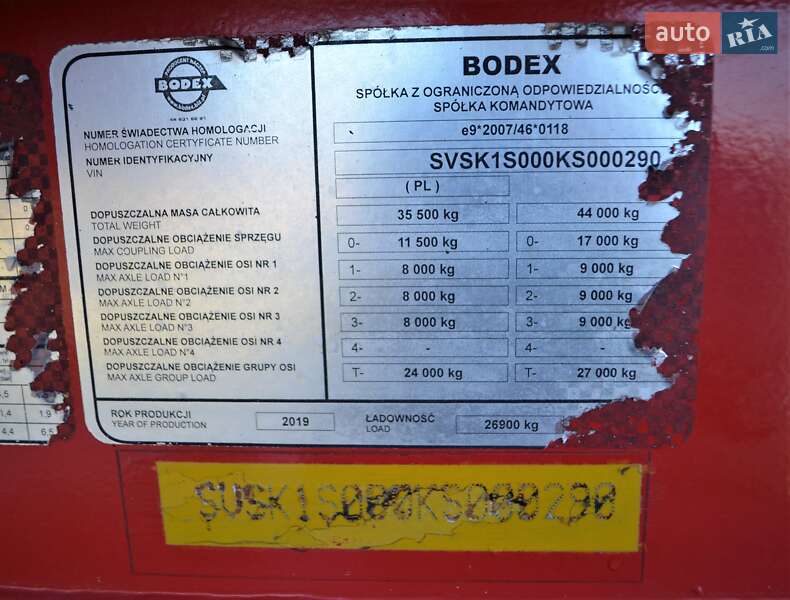 auto RIA .com
PRODUCENT NACZEP
BODEX
www.bodex.pl
BODEX
SPÓŁKA Z OGRANICZONĄ ODPOWIEDZIALNOŚC
SPÓŁKA KOMANDYTOWA
NUMER ŚWIADECTWA HOMOLOGACJI
HOMOLOGATION CERTIFICATE NUMBER
e9*2007/46*0118
NUMER IDENTYFIKACYJNY
VIN
SVSK1S000KS000290
(PL)
DOPUSZCZALNA MASA CAŁKOWITA 35 500 kg 44 000 kg
TOTAL WEIGHT
DOPUSZCZALNE OBCIĄŻENIE SPRZĘGU 0- 11 500 kg 0- 17 000 kg
MAX COUPLING LOAD
DOPUSZCZALNE OBCIĄŻENIE OSI NR 1 1- 8 000 kg 1- 9 000 kg
MAX AXLE LOAD N°1
DOPUSZCZALNE OBCIĄŻENIE OSI NR 2 2- 8 000 kg 2- 9 000 kg
MAX AXLE LOAD N°2
DOPUSZCZALNE OBCIĄŻENIE OSI NR 3 3- 8 000 kg 3- 9 000 kg
MAX AXLE LOAD N°3
DOPUSZCZALNE OBCIĄŻENIE OSI NR 4 4- - 4- -
MAX AXLE LOAD N°4
DOPUSZCZALNE OBCIĄŻENIE GRUPY OSI T- 24 000 kg T- 27 000 kg
MAX AXLE GROUP LOAD
ROK PRODUKCJI 2019 ŁADOWNOŚĆ 26900 kg
YEAR OF PRODUCTION LOAD
1,4 1,9
4,4 6,5
SVSK1S000KS000290